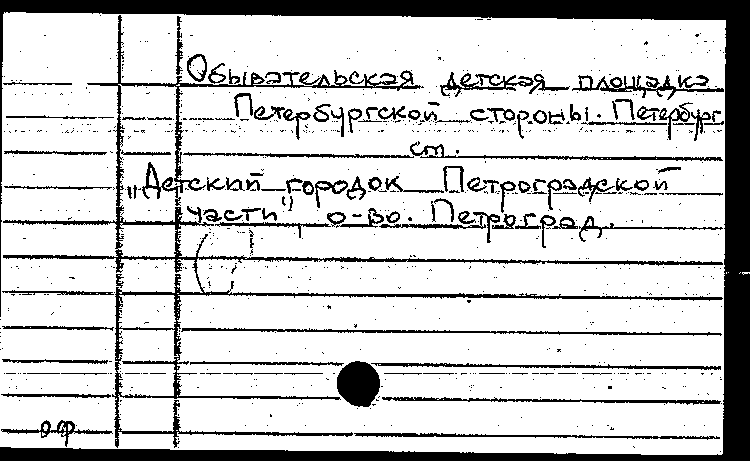 Обывательская детская площадка
Петербургской стороны. Петербург
ст.
„Детский городок Петроградской
части", о-во. Петроград.
ОФ